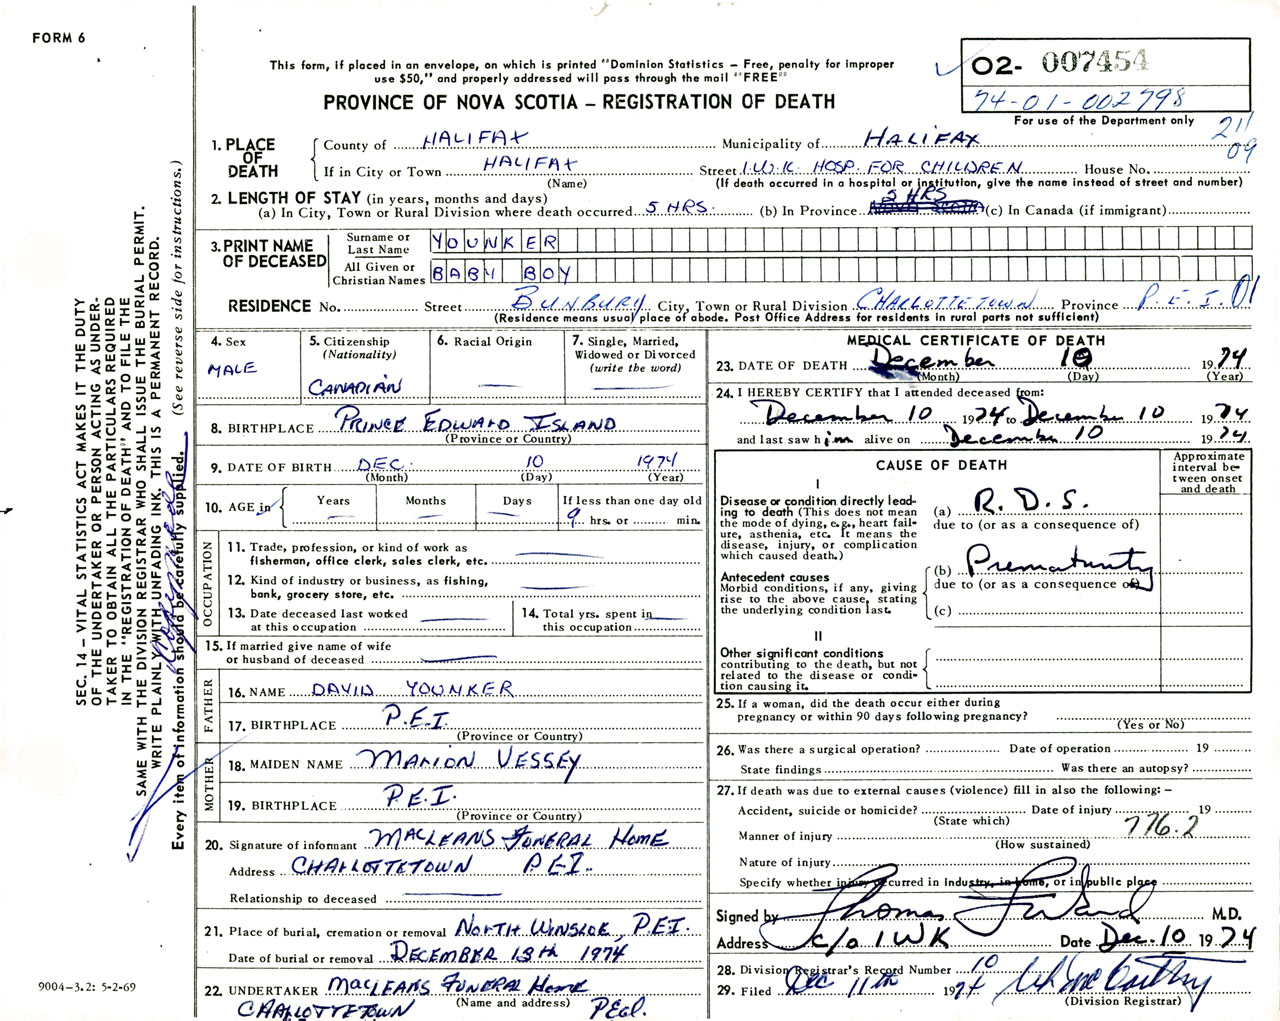 FORM 6
This form, if placed in an envelope, on which is printed "Dominion Statistics – Free, penalty for improper
use $50," and properly addressed will pass through the mail "FREE"
PROVINCE OF NOVA SCOTIA – REGISTRATION OF DEATH
O2- 007454
74-01-002798
For use of the Department only
211
09
1. PLACE OF DEATH
County of HALIFAX Municipality of HALIFAX
If in City or Town HALIFAX Street I.W.K. HOSP. FOR CHILDREN House No.
(Name) (If death occurred in a hospital or institution, give the name instead of street and number)
2. LENGTH OF STAY (in years, months and days)
5 HRS
(a) In City, Town or Rural Division where death occurred 5 HRS. (b) In Province NOVA SCOTIA (c) In Canada (if immigrant)
3. PRINT NAME OF DECEASED
Surname or Last Name YOUNKER
All Given or Christian Names BABY BOY
RESIDENCE No. Street BUNBURY City, Town or Rural Division CHARLOTTETOWN Province P.E.I. 01
(Residence means usual place of abode. Post Office Address for residents in rural parts not sufficient)
4. Sex
MALE
5. Citizenship
(Nationality)
CANADIAN
6. Racial Origin
7. Single, Married,
Widowed or Divorced
(write the word)
8. BIRTHPLACE PRINCE EDWARD ISLAND
(Province or Country)
9. DATE OF BIRTH DEC. 10 1974
(Month) (Day) (Year)
10. AGE in Years Months Days If less than one day old
9 hrs. or min.
OCCUPATION
11. Trade, profession, or kind of work as
fisherman, office clerk, sales clerk, etc.
12. Kind of industry or business, as fishing,
bank, grocery store, etc.
13. Date deceased last worked
at this occupation
14. Total yrs. spent in
this occupation
15. If married give name of wife
or husband of deceased
FATHER
16. NAME DAVID YOUNKER
17. BIRTHPLACE P.E.I.
(Province or Country)
MOTHER
18. MAIDEN NAME MARION VESSEY
19. BIRTHPLACE P.E.I.
(Province or Country)
20. Signature of informant MACLEANS FUNERAL HOME
Address CHARLOTTETOWN P.E.I.
Relationship to deceased
21. Place of burial, cremation or removal NORTH WINSLOE, P.E.I.
Date of burial or removal DECEMBER 13th 1974
22. UNDERTAKER MACLEANS FUNERAL HOME
(Name and address)
CHARLOTTETOWN PEI.
MEDICAL CERTIFICATE OF DEATH
23. DATE OF DEATH December 10 1974
(Month) (Day) (Year)
24. I HEREBY CERTIFY that I attended deceased from:
December 10 1974 to December 10 1974
and last saw him alive on December 10 1974
CAUSE OF DEATH
Approximate
interval be-
tween onset
and death
I
Disease or condition directly lead-
ing to death (This does not mean
the mode of dying, e.g., heart fail-
ure, asthenia, etc. It means the
disease, injury, or complication
which caused death.)
(a) R.D.S.
due to (or as a consequence of)
Antecedent causes
Morbid conditions, if any, giving
rise to the above cause, stating
the underlying condition last.
(b) Prematurity
due to (or as a consequence of)
(c)
II
Other significant conditions
contributing to the death, but not
related to the disease or condi-
tion causing it.
25. If a woman, did the death occur either during
pregnancy or within 90 days following pregnancy?
(Yes or No)
26. Was there a surgical operation? Date of operation 19
State findings Was there an autopsy?
27. If death was due to external causes (violence) fill in also the following: –
Accident, suicide or homicide? Date of injury 19
(State which)
776.2
Manner of injury
(How sustained)
Nature of injury
Specify whether injury occurred in Industry, in home, or in public place
Signed by Thomas M.D.
Address c/o IWK Date Dec. 10 1974
28. Division Registrar's Record Number 10
29. Filed Dec 11th 1974
(Division Registrar)
SEC. 14 – VITAL STATISTICS ACT MAKES IT THE DUTY
OF THE UNDERTAKER OR PERSON ACTING AS UNDER-
TAKER TO OBTAIN ALL THE PARTICULARS REQUIRED
IN THE "REGISTRATION OF DEATH" AND TO FILE THE
SAME WITH THE DIVISION REGISTRAR WHO SHALL ISSUE THE BURIAL PERMIT.
WRITE PLAINLY WITH UNFADING INK. THIS IS A PERMANENT RECORD.
Every item of information should be carefully supplied. (See reverse side for instructions.)
9004-3.2: 5-2-69